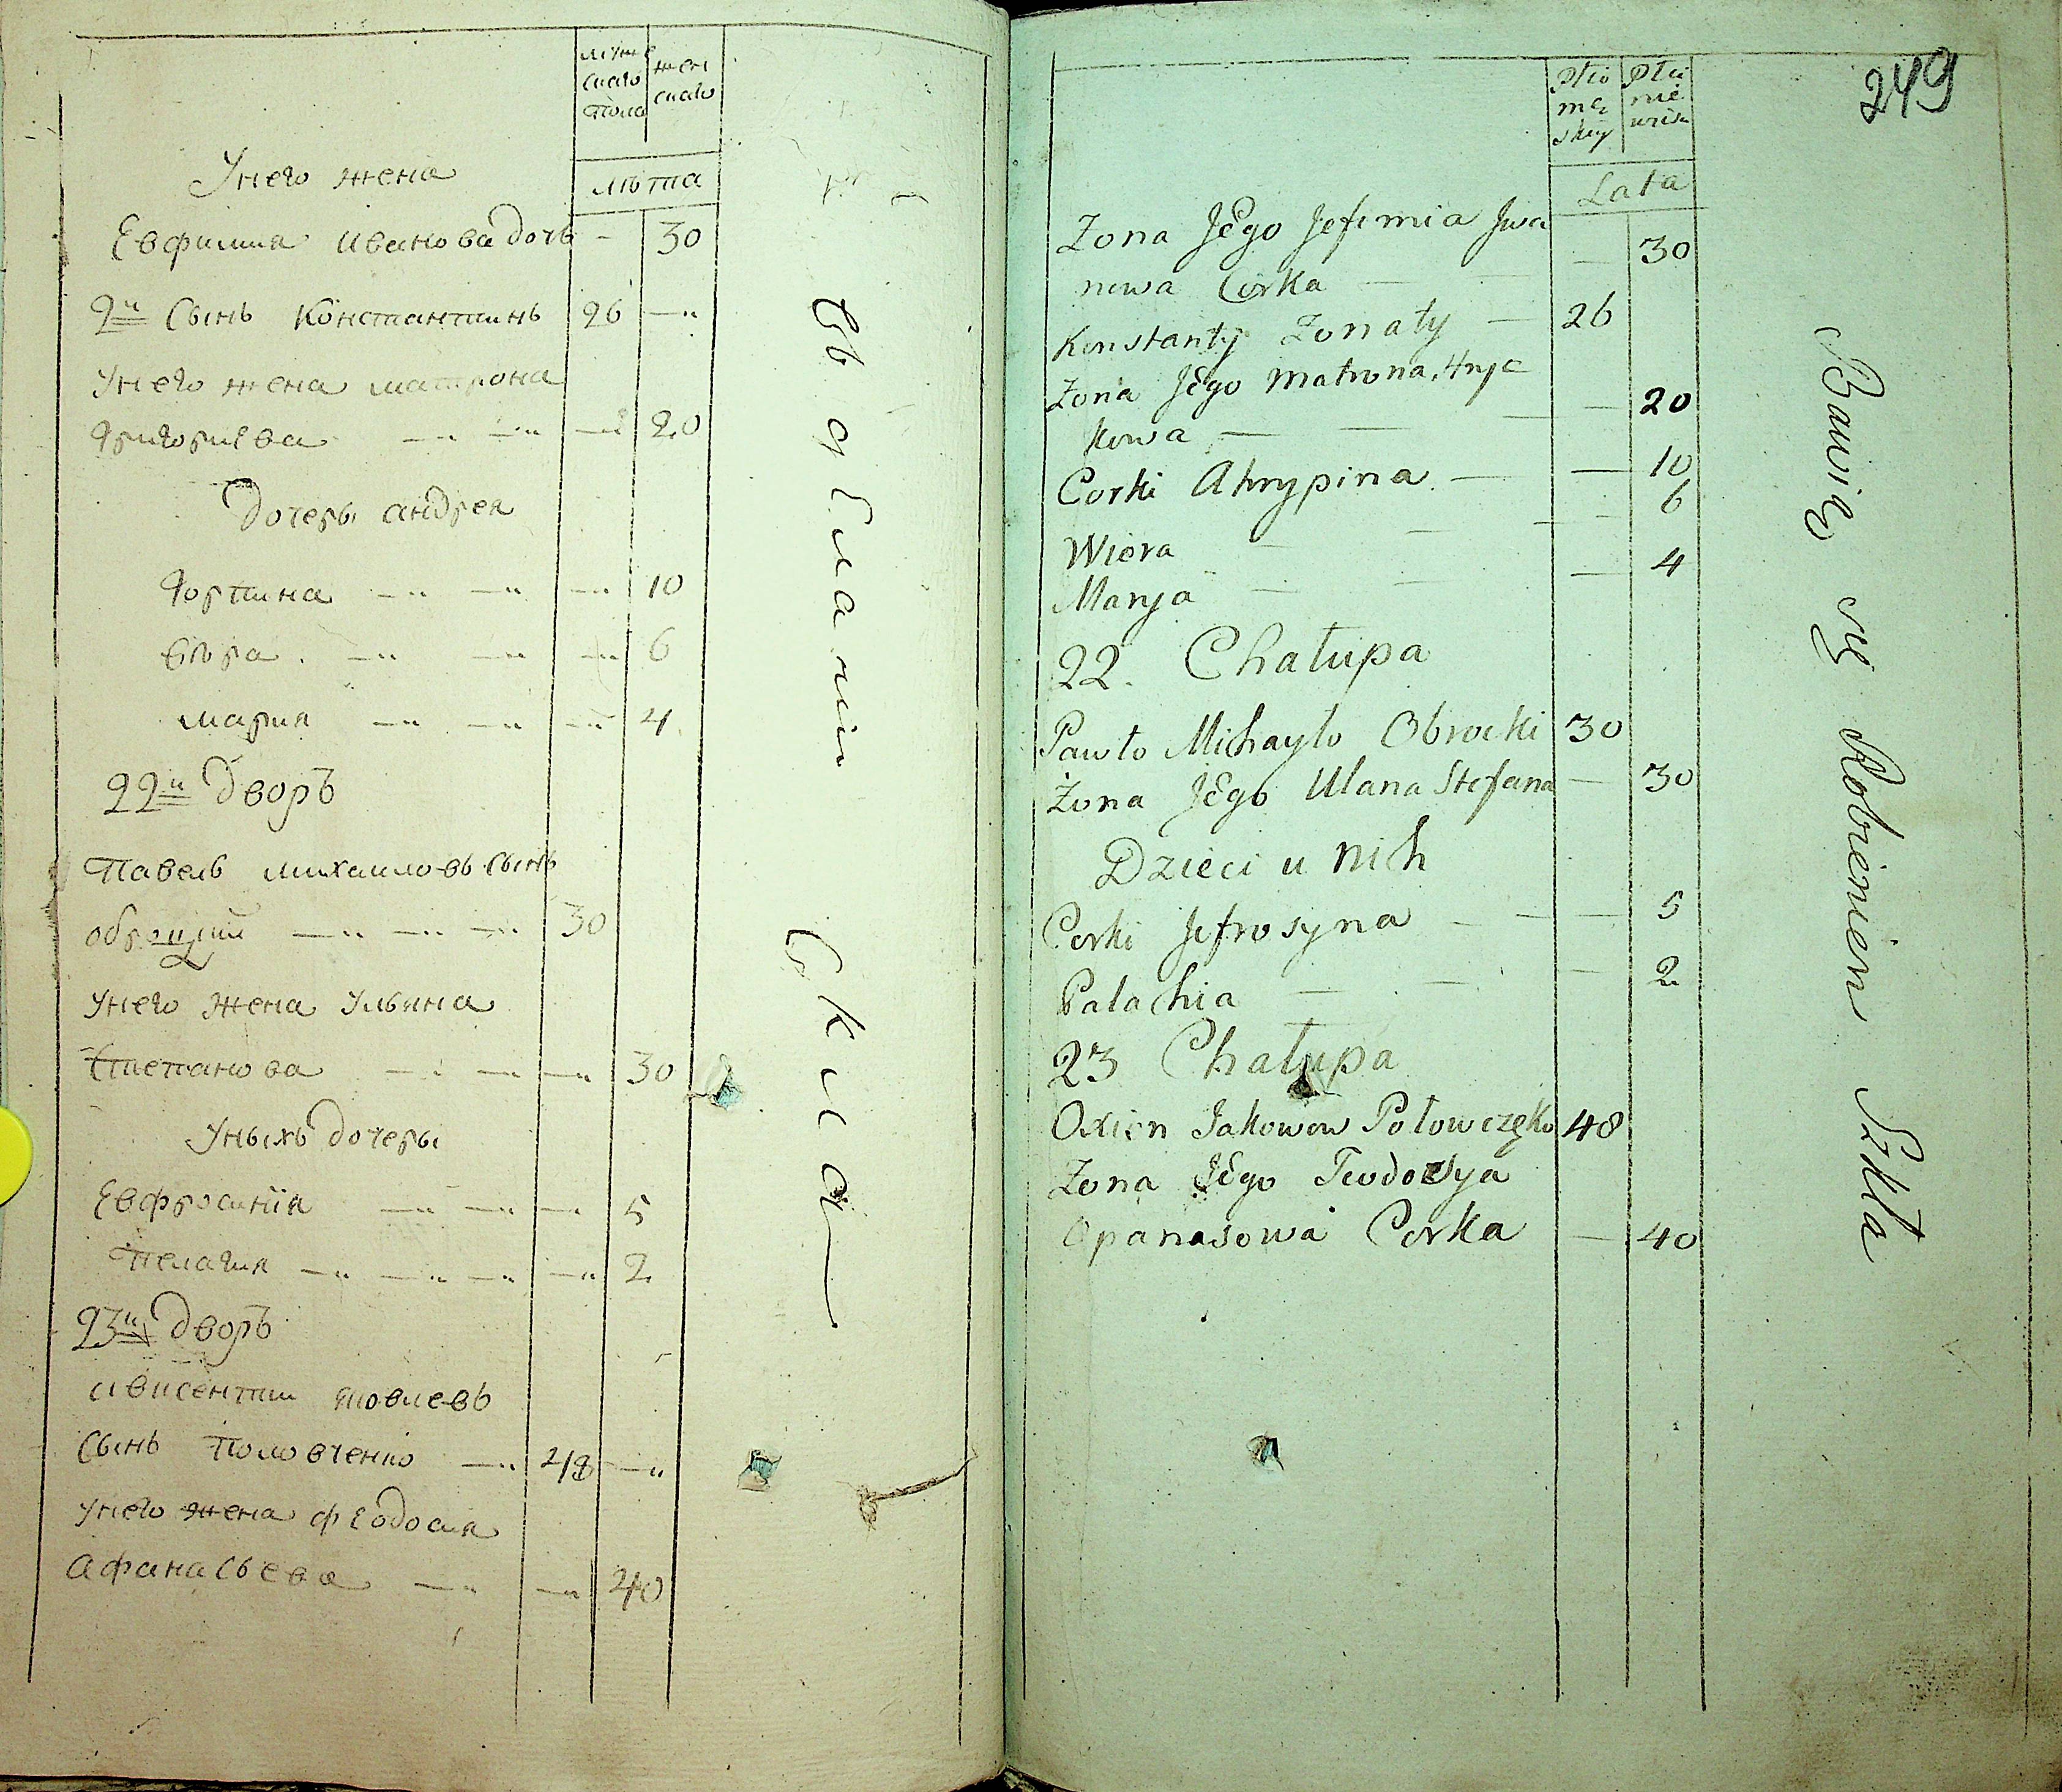 муже
скаго
пола
жен
скаго
лѣта
Унего жена
Евфимия Иванова дочь - 30
2й Сынъ Константинъ 26 —
Унего жена матрона
Григориева — — — 20
Дочеры андрея
— — — 10
Вѣра . — — — 6
мария — — — 4
22й дворъ
Павелъ михаиловъ сынъ
— — — 30
Унего жена Ульяна
Степанова — — — 30
Уныхъ дочеры
Евфросиния — — — 5
Пелагия — — — — 2
23й дворъ
Авксентии яковлевъ
Сынъ Половченко — 48 —
Унего жена феодосия
Афанасьева — — 40
249
Płci
mę
skiy
Płci
nie
wiś
Lata
Zona JEgo Jefimia Jwa
nowa Corka — — 30
Konstanty Zonaty — 26
Zona JEgo Matrona Hryc
kowa — — — — 20
Corki Ahrypina — — 10
Wiera — — — 6
Marya — — — 4
22. Chałupa
Pawło Michayło Obrocki 30
Żona JEgo Ulana Stefana — 30
Dzieci u nich
Corki Jefrosyna — — — 5
Palachia — — — 2
23 Chałupa
Oxien Jakowow Połowczęko 48
Zona JEgo Teodosya
Opanasowa Corka — 40
Bawią się Robieniem Szkła